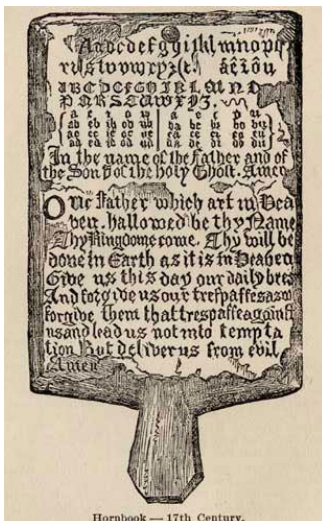 Aabcdefghijklmnopq
rſstuvwxyz&. âêîôû
ABCDEFGHIKLMN
PQRSTUWXYZ.
a e i o u a e i o u
ab eb ib ob ub ba be bi bo bu
ac ec ic oc uc ca ce ci co cu
ad ed id od ud da de di do du
In the name of the Father and of
the Son & of the holy Ghost. Amen
Our Father which art in Hea
ven, hallowed be thy Name
Thy Kingdome come, Thy will be
done in Earth as it is in Heaven
Give us this day our daily brea
And forgive us our treſpaſſes as w
forgive them that treſpaſſe againſt
us and lead us not into tempta
tion But deliver us from evil
Amen
Hornbook — 17th Century.